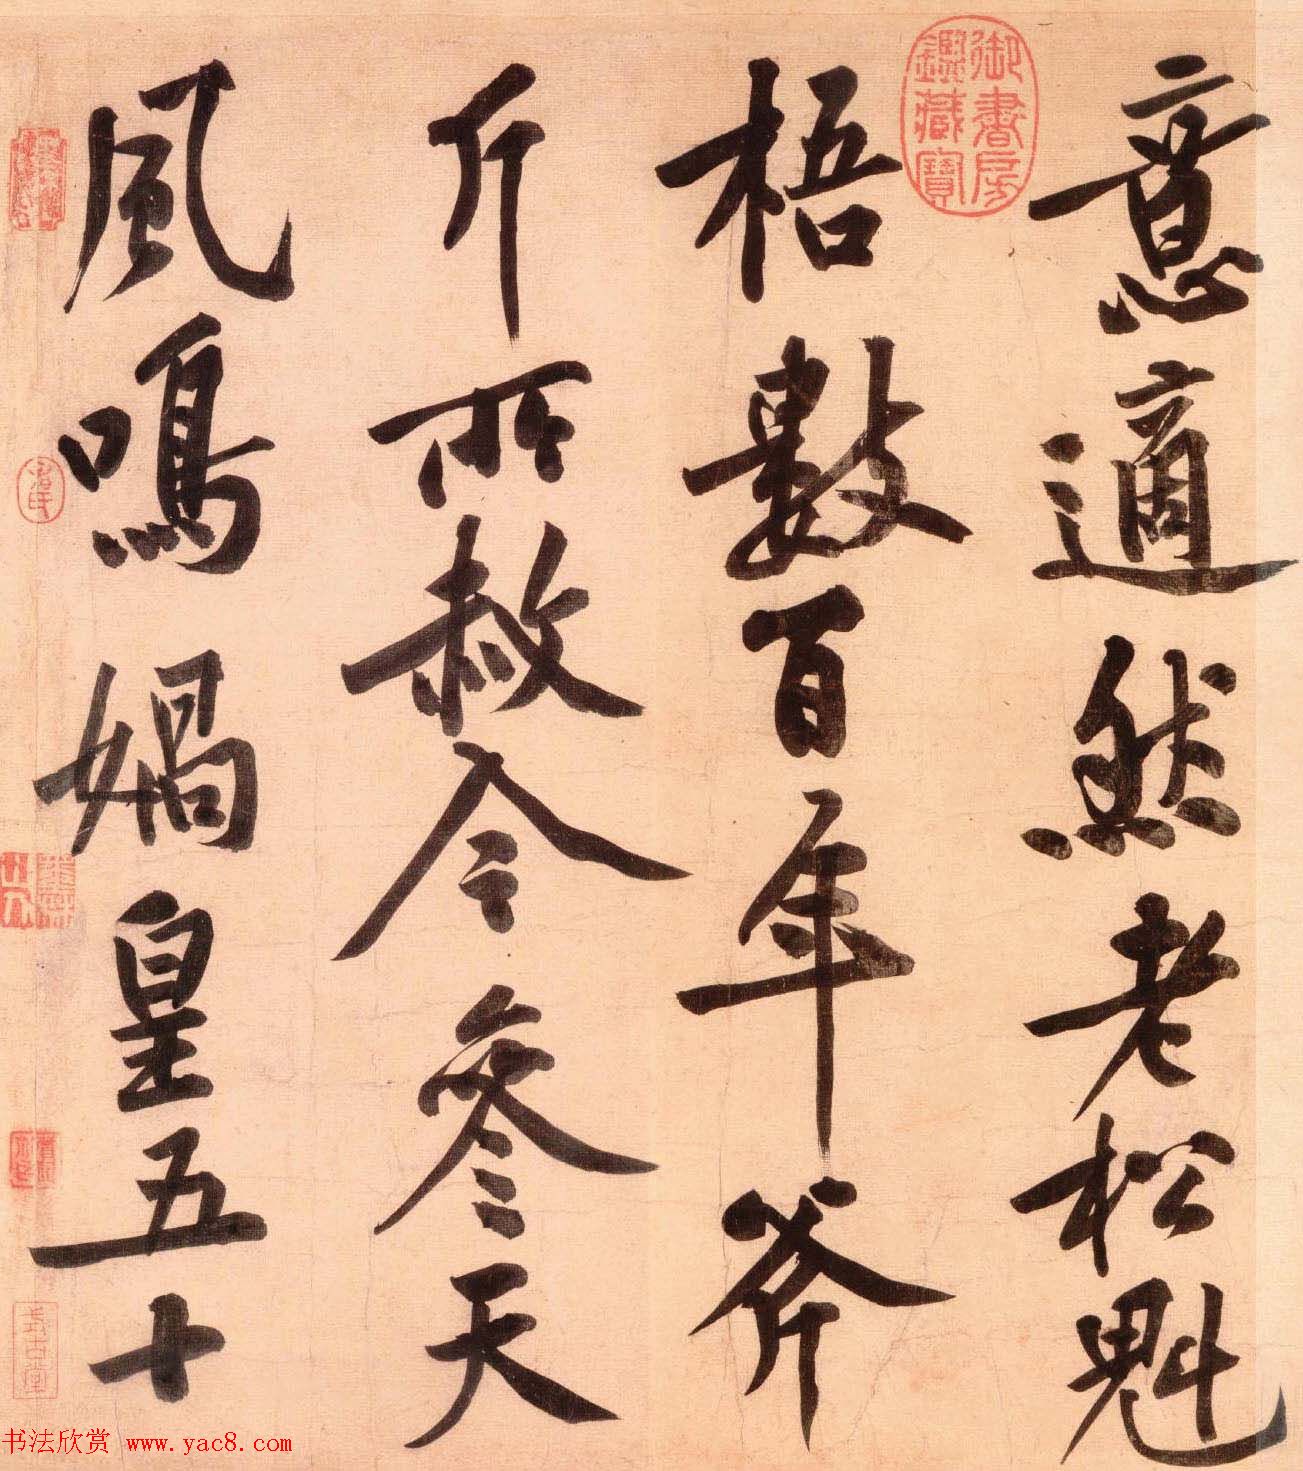 意適然老松魁
梧數百年斧
斤所赦今參天
風鳴媧皇五十
御書房鑑藏寶
書法欣赏 www.yac8.com